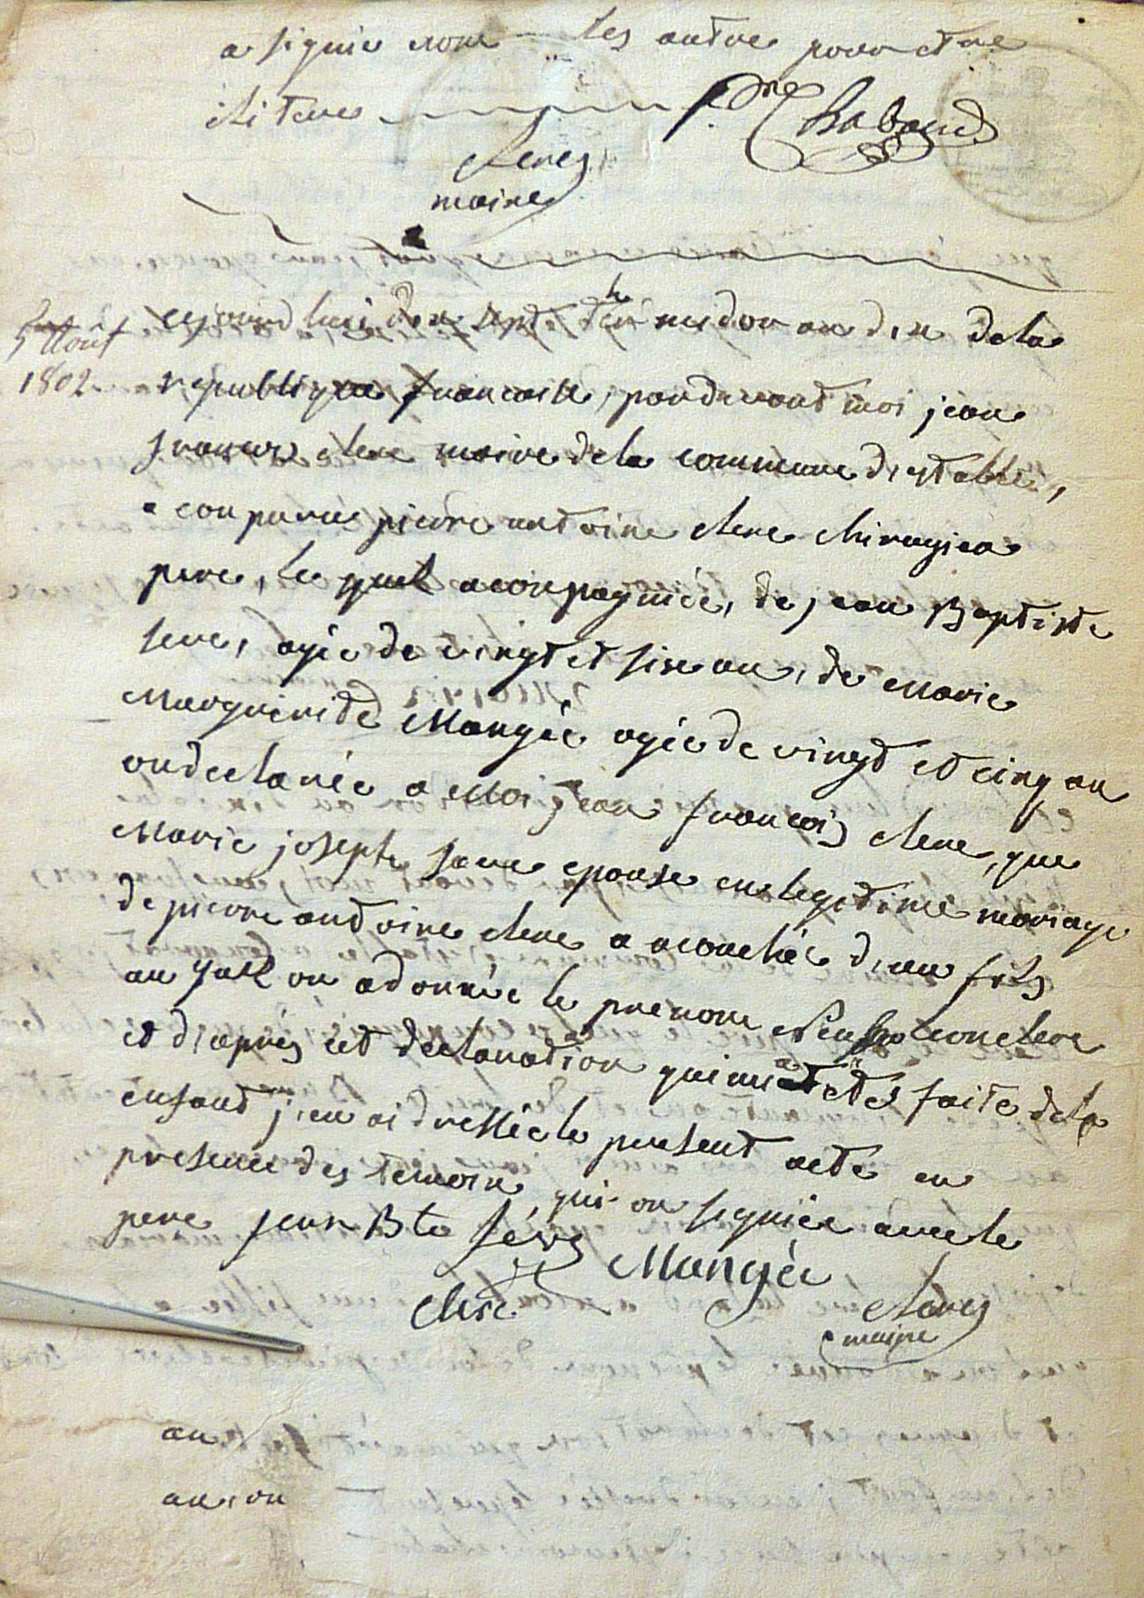 a signie non les autre pour etre
iliterе
P.re Chabaud
clerc
maire
5 Août
1802
cejourd hui dix sept thermidor an dix de la
republique francaise, pardevant moi jean
francois clerc maire dela commune d'estable,
a conparue pierre antoine clerc chirugien
pere, le quel aconpagniée, de jean Baptiste
seve, agée de vingt et sixe an, de Marie
Marguerite Mangée agée de vingt et cinq an
on declarée a Moi jean francois clerc, que
Marie joseph seve epouse en legitime mariage
de pierre antoine clerc a acouchée d'eun fils
au quel on adonnée le prenom clerc
et d'aprés cet declaration qui ma etés faite dela
enfant j'en ai dressée le present acte en
presence des temoin, qui on signiée avec le
pere jean Bte sève Mangée
clerc clerc
maire
an
an on